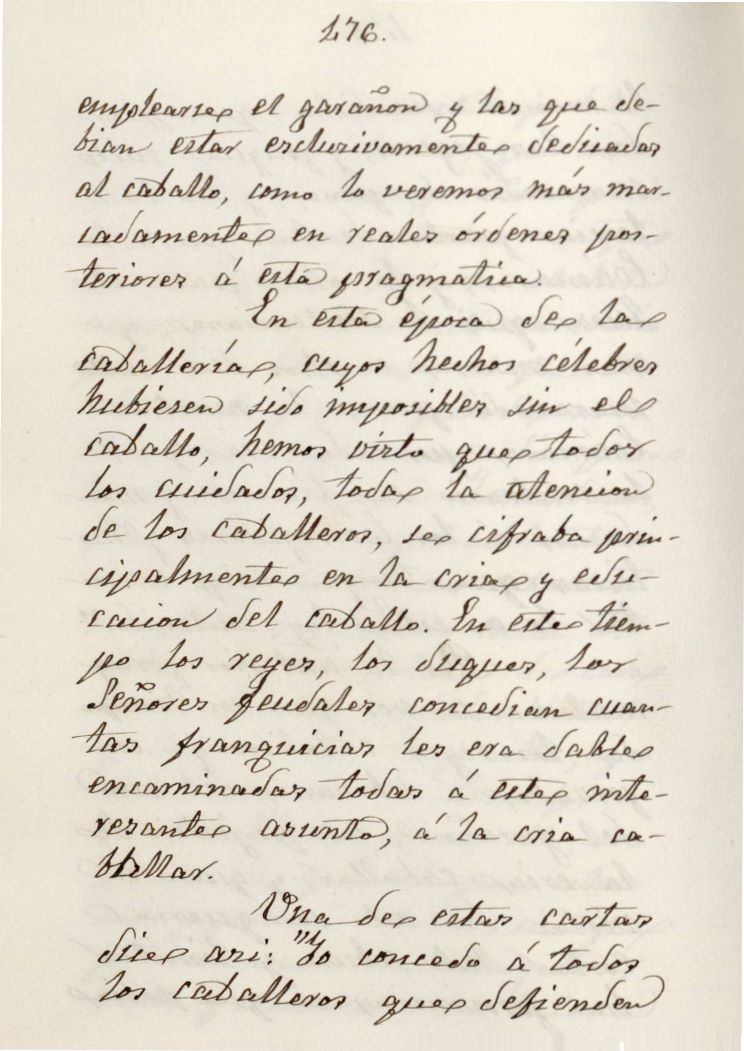 176.
emplearse el garañon y las que de-
bian estar esclusivamente dedicadas
al caballo, como lo veremos más mar-
cadamente en reales órdenes pos-
teriores á esta pragmatica.
En esta época de la
caballería, cuyos hechos célebres
hubiesen sido imposibles sin el
caballo, hemos visto que todos
los cuidados, toda la atencion
de los caballeros, se cifraba prin-
cipalmente en la cria y edu-
cacion del caballo. En este tiem-
po los reyes, los duques, los
Señores feudales concedian cuan-
tas franquicias les era dable
encaminadas todas á este inte-
resante asunto, á la cria ca-
ballar.
Una de estas cartas
dice asi: "Yo concedo á todos
los caballeros que defienden